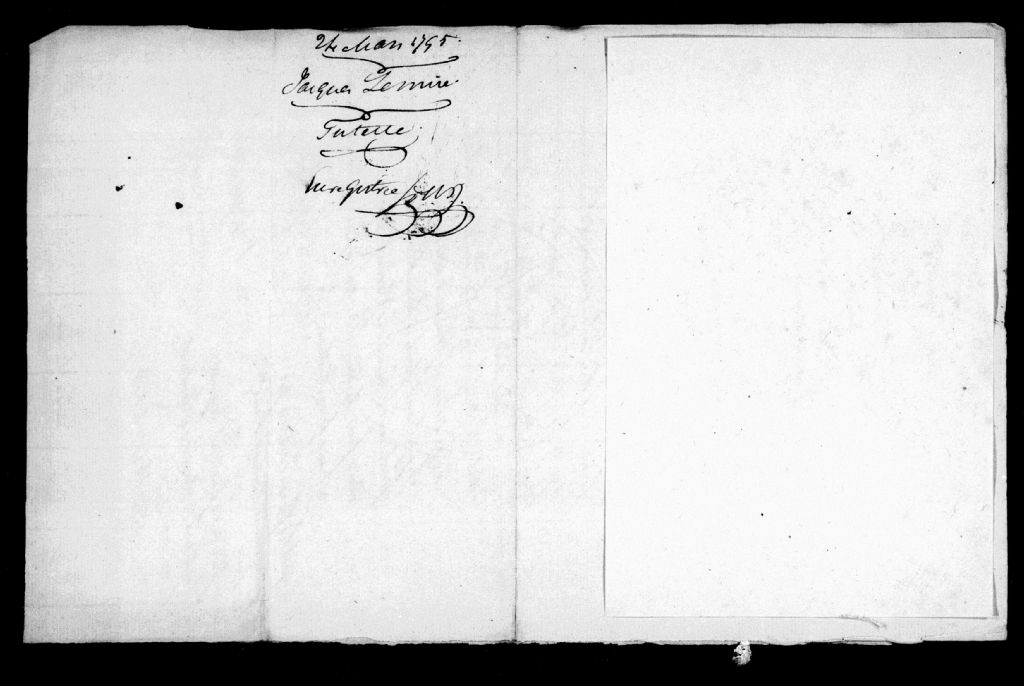 24 Mars 1795.
Jacques Lemire
Tutelle.
Enregistrée